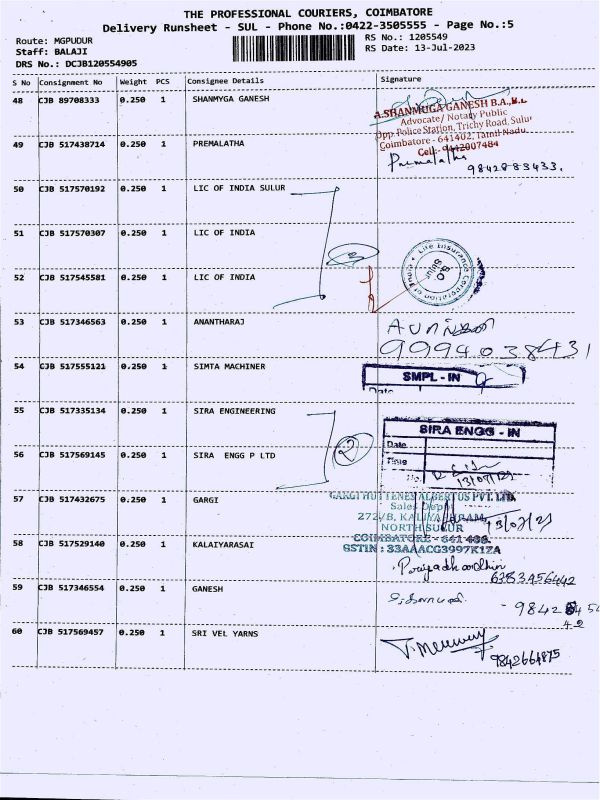 THE PROFESSIONAL COURIERS, COIMBATORE
Delivery Runsheet - SUL - Phone No.:0422-3505555 - Page No.:5
Route: MGPUDUR
RS No.: 1205549
Staff: BALAJI
RS Date: 13-Jul-2023
DRS No.: DCJB120554905
S No Consignment No Weight PCS Consignee Details Signature
48 CJB 89708333 0.250 1 SHANMYGA GANESH
A.SHANMUGA GANESH B.A.,B.L
Advocate/ Notary Public
Opp. Police Station, Trichy Road, Sulur
Coimbatore - 641402, Tamil Nadu
Cell:- 9442007484
49 CJB 517438714 0.250 1 PREMALATHA
Premalatha
9842883433.
50 CJB 517570192 0.250 1 LIC OF INDIA SULUR
51 CJB 517570307 0.250 1 LIC OF INDIA
3
Life Insurance Corporation of India
B.O
Sulur
52 CJB 517545581 0.250 1 LIC OF INDIA
53 CJB 517346563 0.250 1 ANANTHARAJ
9994038431
54 CJB 517555121 0.250 1 SIMTA MACHINER
SMPL - IN
Date
55 CJB 517335134 0.250 1 SIRA ENGINEERING
SIRA ENGG - IN
Date
Time
No.
13/07/23
56 CJB 517569145 0.250 1 SIRA ENGG P LTD
2
57 CJB 517432675 0.250 1 GARGI
GARGI HUTTENES ALBERTUS PVT. LTD.
Sales Depot
272/B, KALIYAPURAM,
NORTH SULUR
COIMBATORE - 641 402.
GSTIN : 33AAACG3997K1ZA
13/07/23
58 CJB 517529140 0.250 1 KALAIYARASAI
6383456442
59 CJB 517346554 0.250 1 GANESH
60 CJB 517569457 0.250 1 SRI VEL YARNS
9842664875